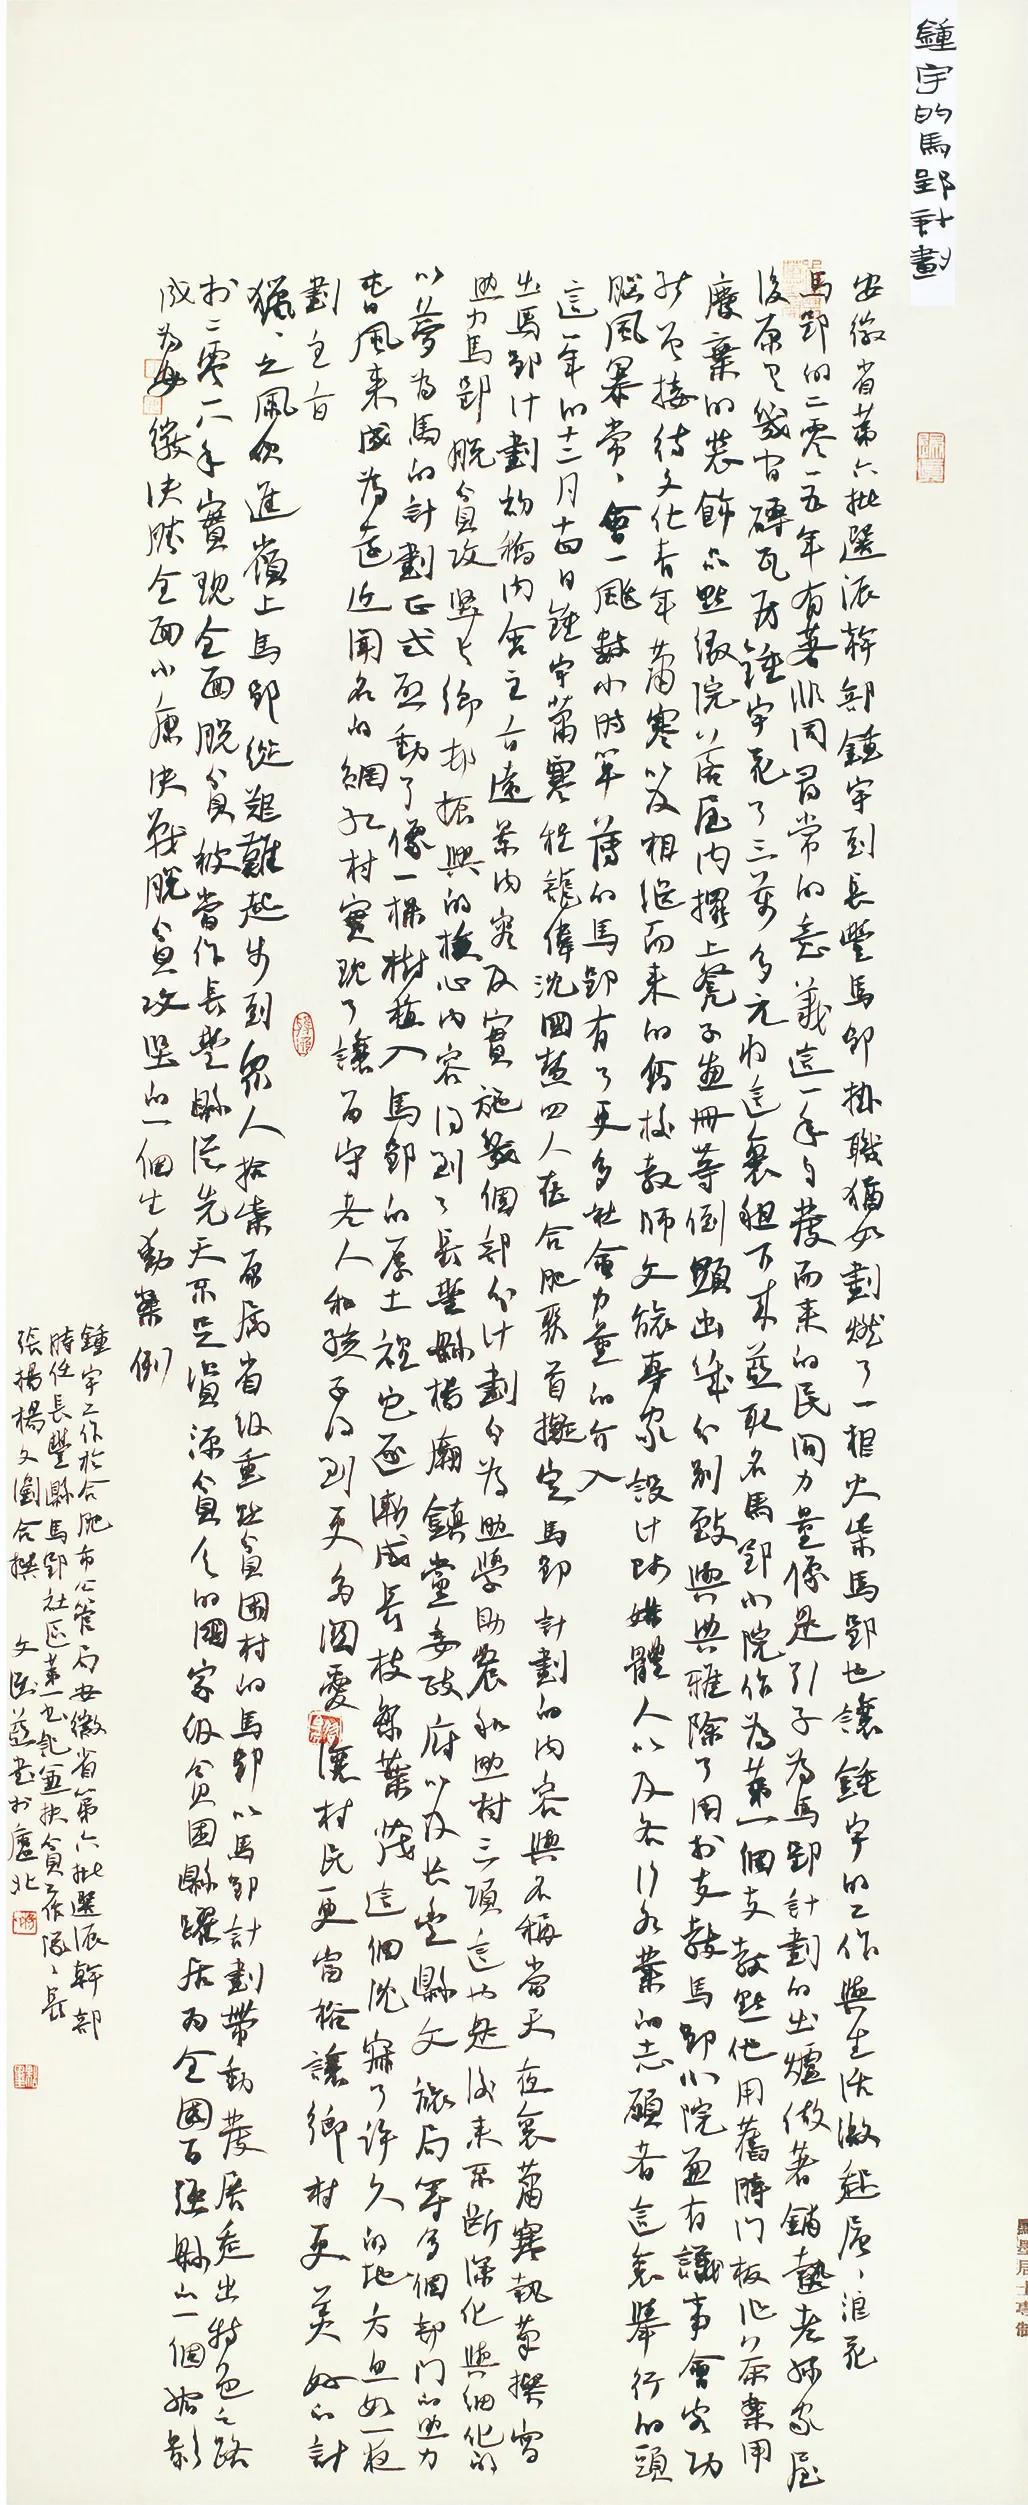 鍾宇的馬郢計劃
安徽省第六批選派幹部鍾宇到長豐馬郢掛職猶如劃燃了一根火柴馬郢也讓鍾宇的工作與生活激起層、浪花
馬郢的二零一五年有著非同尋常的意義這一年自發而來的民間力量像是引子為馬郢計劃的出爐做著鋪墊老鄉家屋
後原有幾間磚瓦房鍾宇花了三萬多元將這裏租下來並取名馬郢小院作為第一個支教點他用舊時門板作茶桌用
廢棄的裝飾品點綴院落屋內擺上凳子畫冊等倒顯出幾分別致與典雅除了用於支教馬郢小院兼有議事會客功
能曾接待文化青年蕭寒以及相繼而來的高校教師文旅專家設計師媒體人以及各行各業的志願者這裏舉行的頭
腦風暴常、會一颳數小時單薄的馬郢有了更多社會力量的介入
這一年的十二月十四日鍾宇蕭寒程龍偉沈國慧四人在合肥聚首擬定馬郢計劃的內容與名稱當天夜裏蕭寒執筆撰寫
出馬郢計劃初稿內含主旨遠景內容及實施幾個部分計劃分為助學助農和助村三項這也是後來不斷深化與細化的
助力馬郢脫貧攻堅與鄉村振興的核心內容得到了長豐縣楊廟鎮黨委政府以及長豐縣文旅局等多個部門的助力
以夢為馬的計劃正式啟動了像一棵樹植入馬郢的厚土裡它逐漸成長枝繁葉茂這個沉寂了許久的地方忽如一夜
春風來成為遠近聞名的網紅村實現了讓留守老人和孩子得到更多關愛讓村民更富裕讓鄉村更美好的計
劃主旨
獵、之風吹進崗上馬郢從艱難起步到眾人拾柴原屬省級重點貧困村的馬郢以馬郢計劃帶動發展走出特色之路
於二零一八年實現全面脫貧被當作長豐縣從先天不足資源貧乏的國家級貧困縣躍居為全國百強縣的一個縮影
成為安徽決勝全面小康決戰脫貧攻堅的一個生動案例
鍾宇工作於合肥市公管局安徽省第六批選派幹部
時任長豐縣馬郢社區第一書記兼扶貧工作隊、長
張揚楊文劉合撰 文 並書於廬北
點墨居士專制